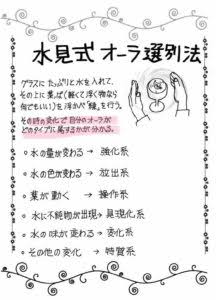 水見式オーラ選別法
グラスにたっぷりと水を入れて、
その上に葉っぱ(軽くて浮く物なら
何でもいい)を浮かべ"練"を行う。
その時の変化で自分のオーラが
どのタイプに属するかが分かる。
○水の量が変わる→強化系
○水の色が変わる→放出系
○葉が動く→操作系
○水に不純物が出現→具現化系
○水の味が変わる→変化系
○その他の変化→特質系